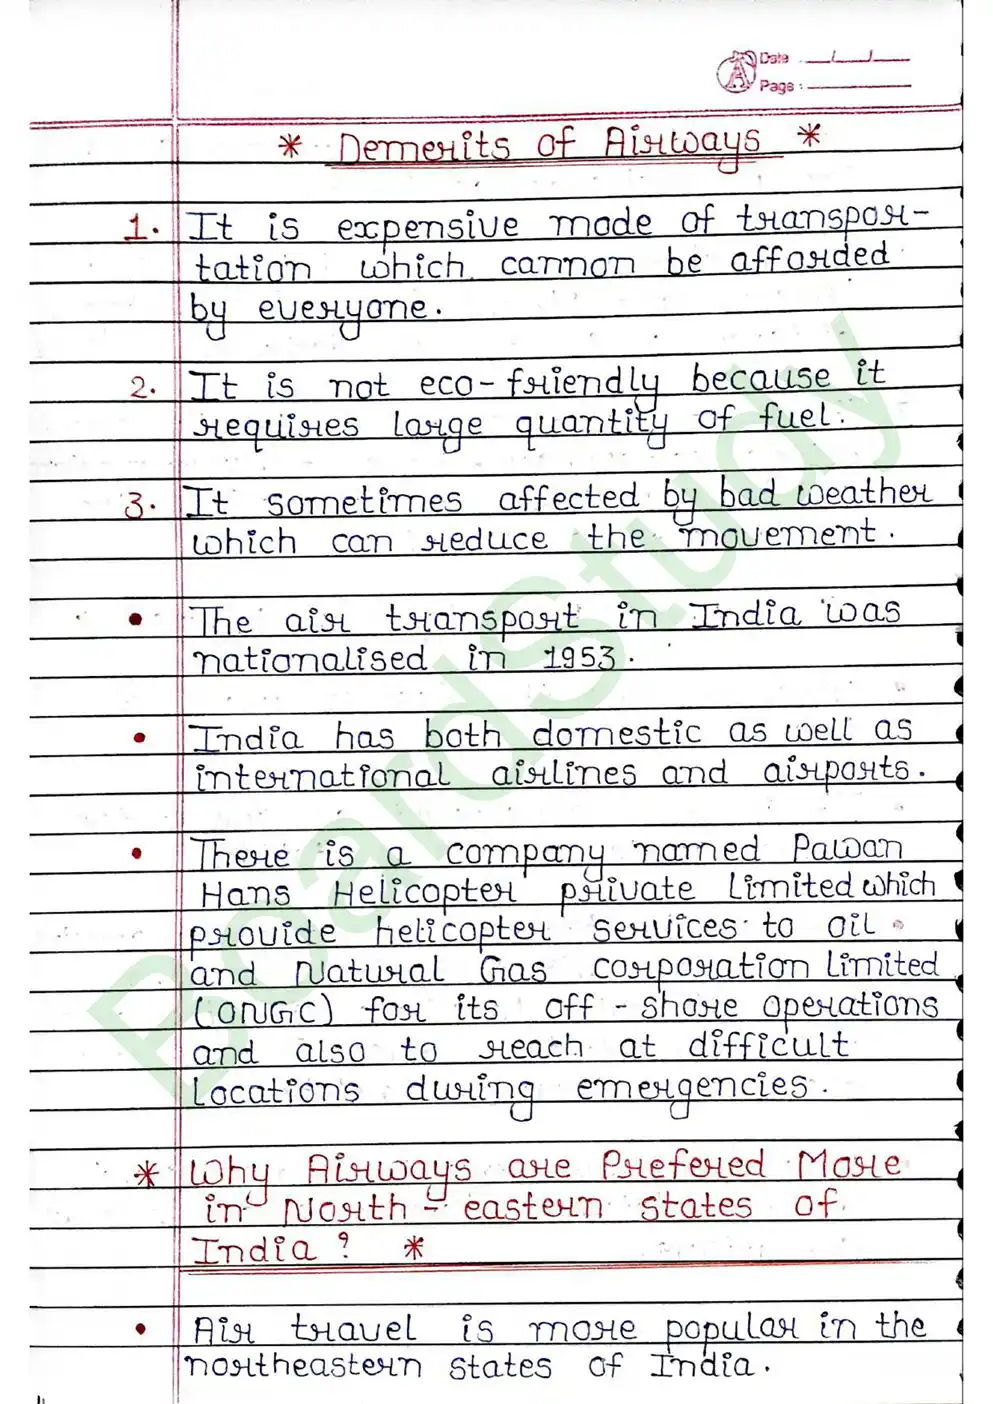 Date : __/__/__
Page :
* Demerits of Airways *
1. It is expensive mode of transpor-
tation which cannon be afforded
by everyone.
2. It is not eco-friendly because it
requires large quantity of fuel.
3. It sometimes affected by bad weather
which can reduce the movement.
• The air transport in India was
nationalised in 1953.
• India has both domestic as well as
international airlines and airports.
• There is a company named Pawan
Hans Helicopter private limited which
provide helicopter services to oil
and Natural Gas corporation limited
(ONGC) for its off-shore operations
and also to reach at difficult
locations during emergencies.
* Why Airways are Prefered More
in North-eastern states of
India ? *
• Air travel is more popular in the
northeastern states of India.
BoardStudy